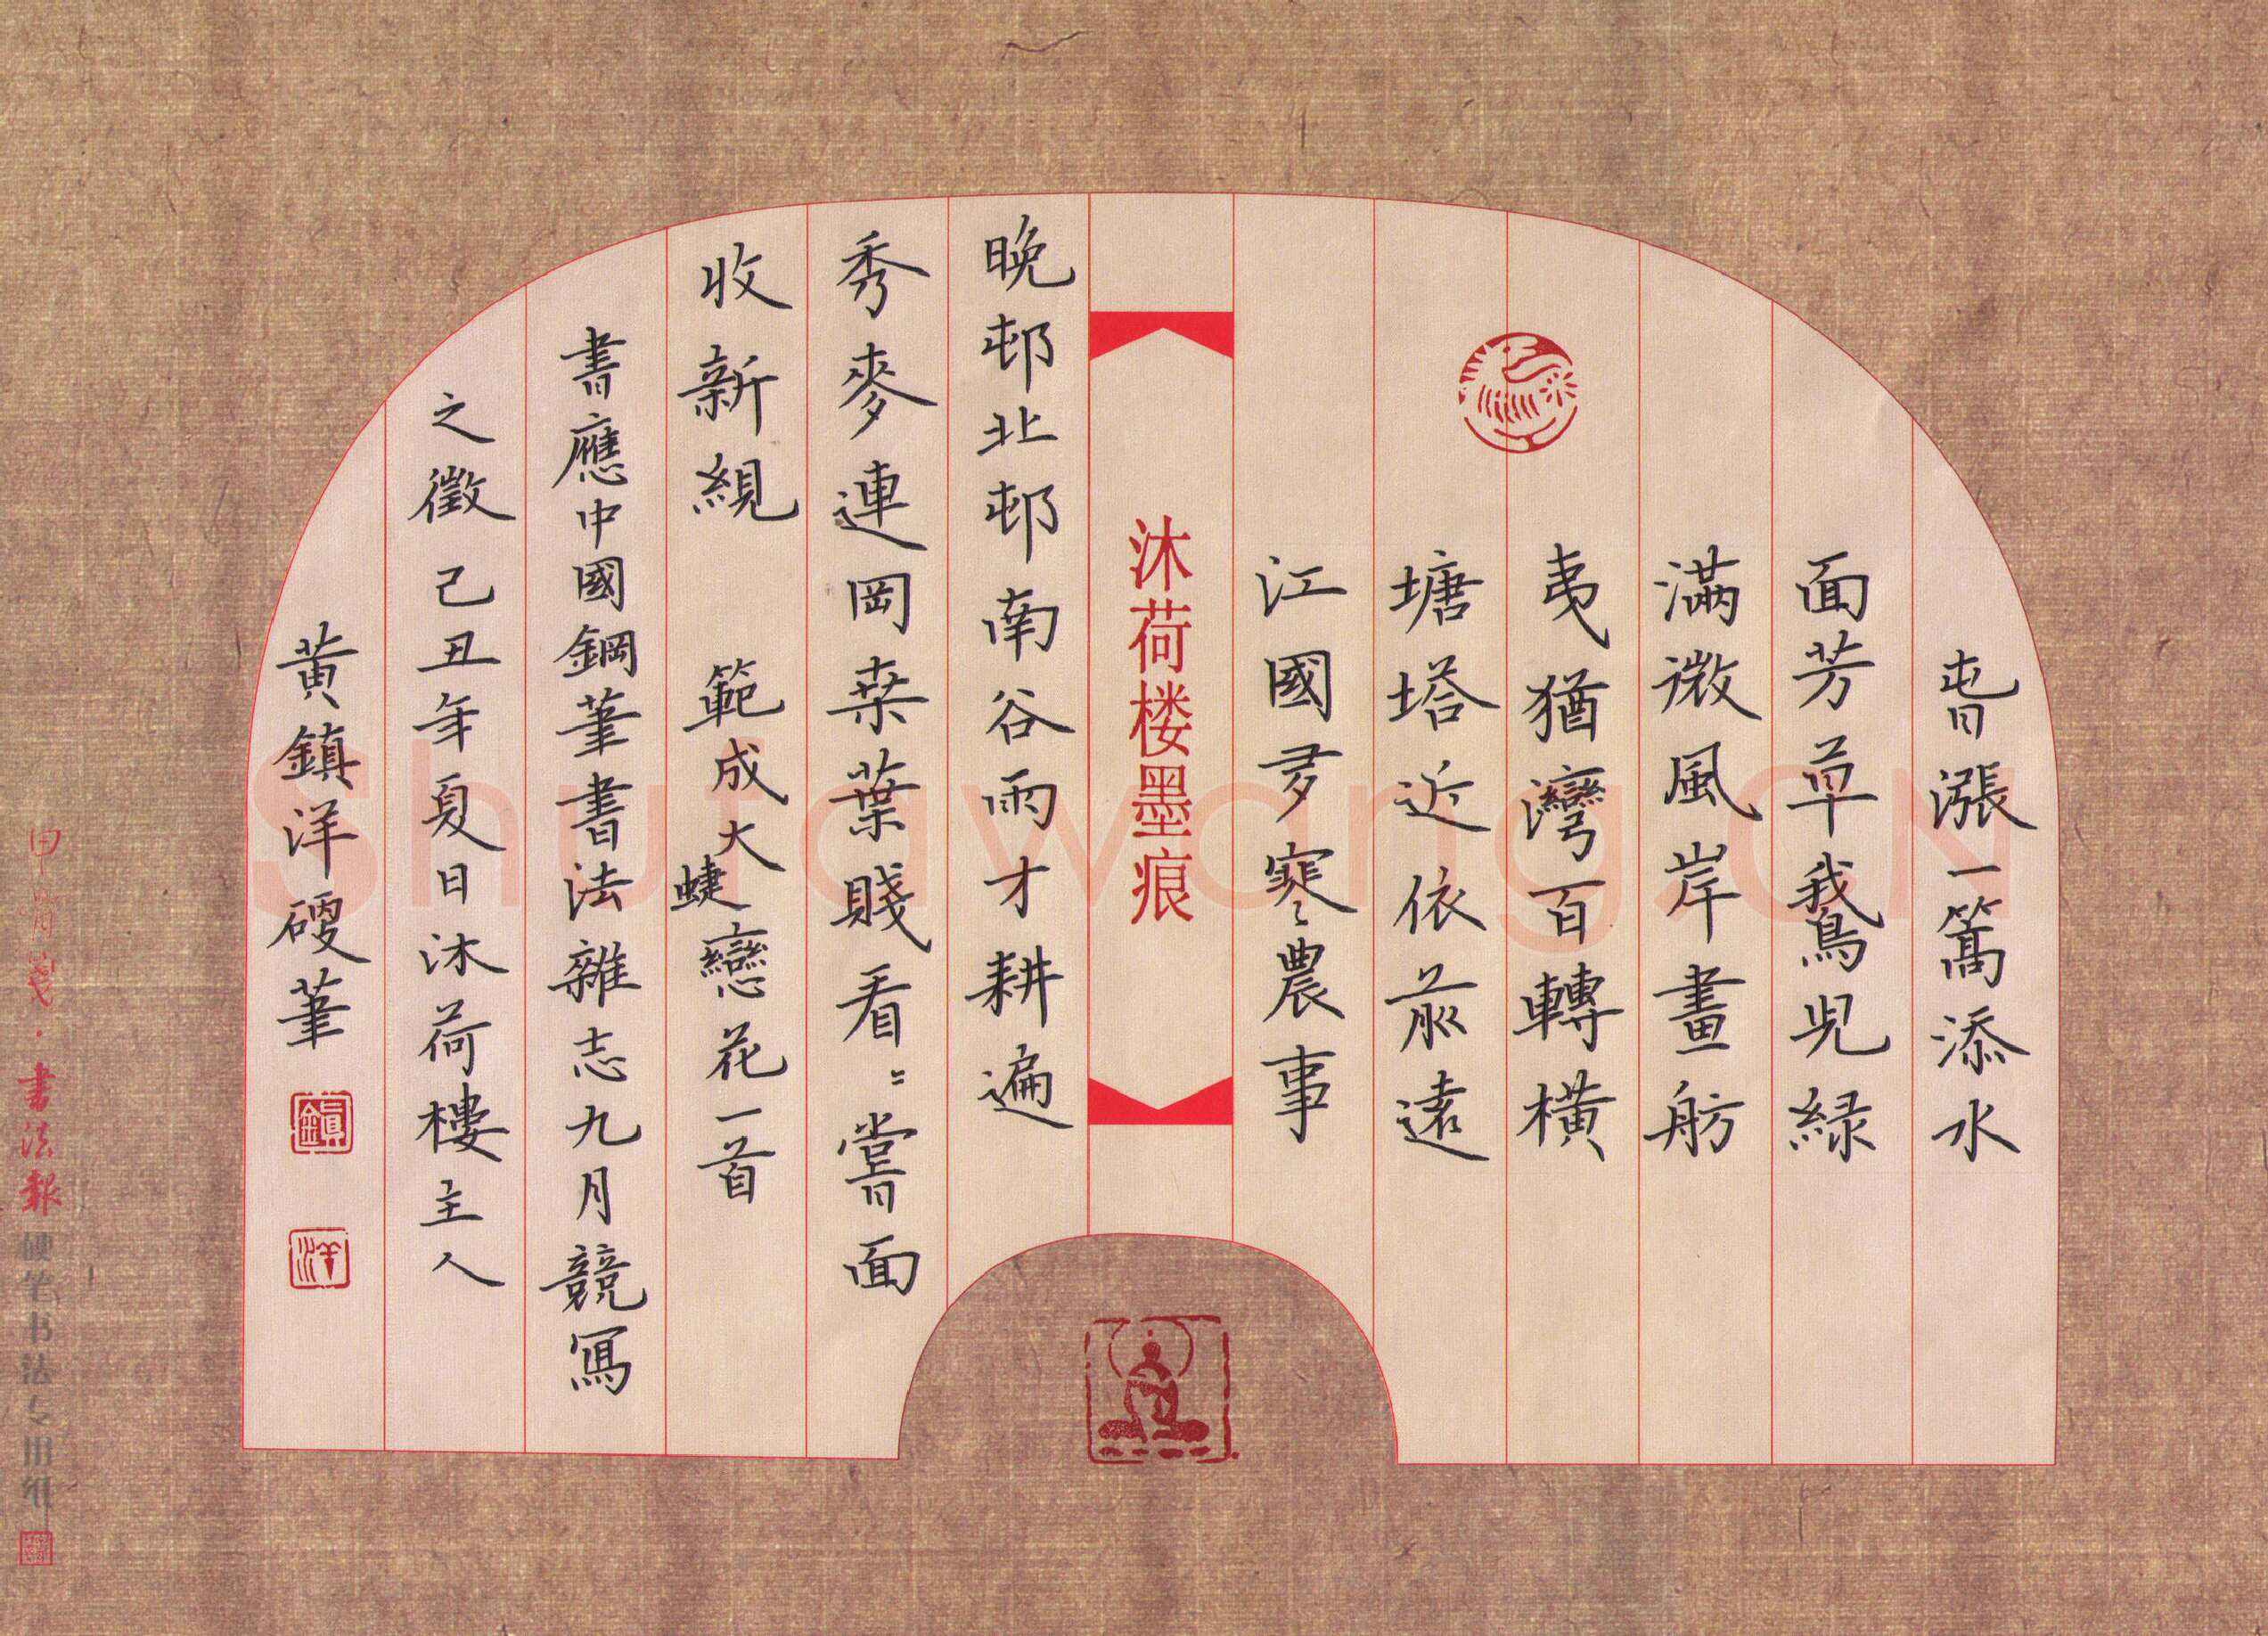 旾漲一篙添水
面芳草鵞兒緑
滿微風岸畫舫
夷猶灣百轉橫
塘塔近依前遠
江國多寒農事
沐荷楼墨痕
晚邨北邨南谷雨才耕遍
秀麥連岡桒葉賤看〻嘗面
收新絸 範成大蜨戀花一首
書應中國鋼筆書法雜志九月競寫
之徵己丑年夏日沐荷樓主人
黄鎮洋硬筆
鎮
洋
書法報硬笔书法专用纸
Shufawang.CN